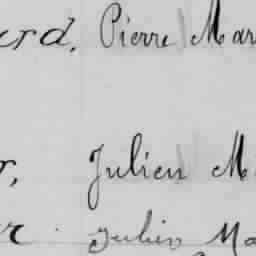 urd, Pierre Mar
r, Julien M
r. Julien Ma